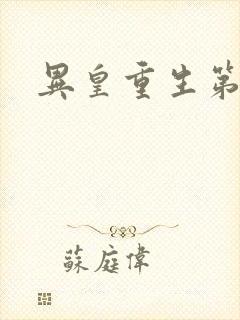 異皇重生第
蘇庭偉